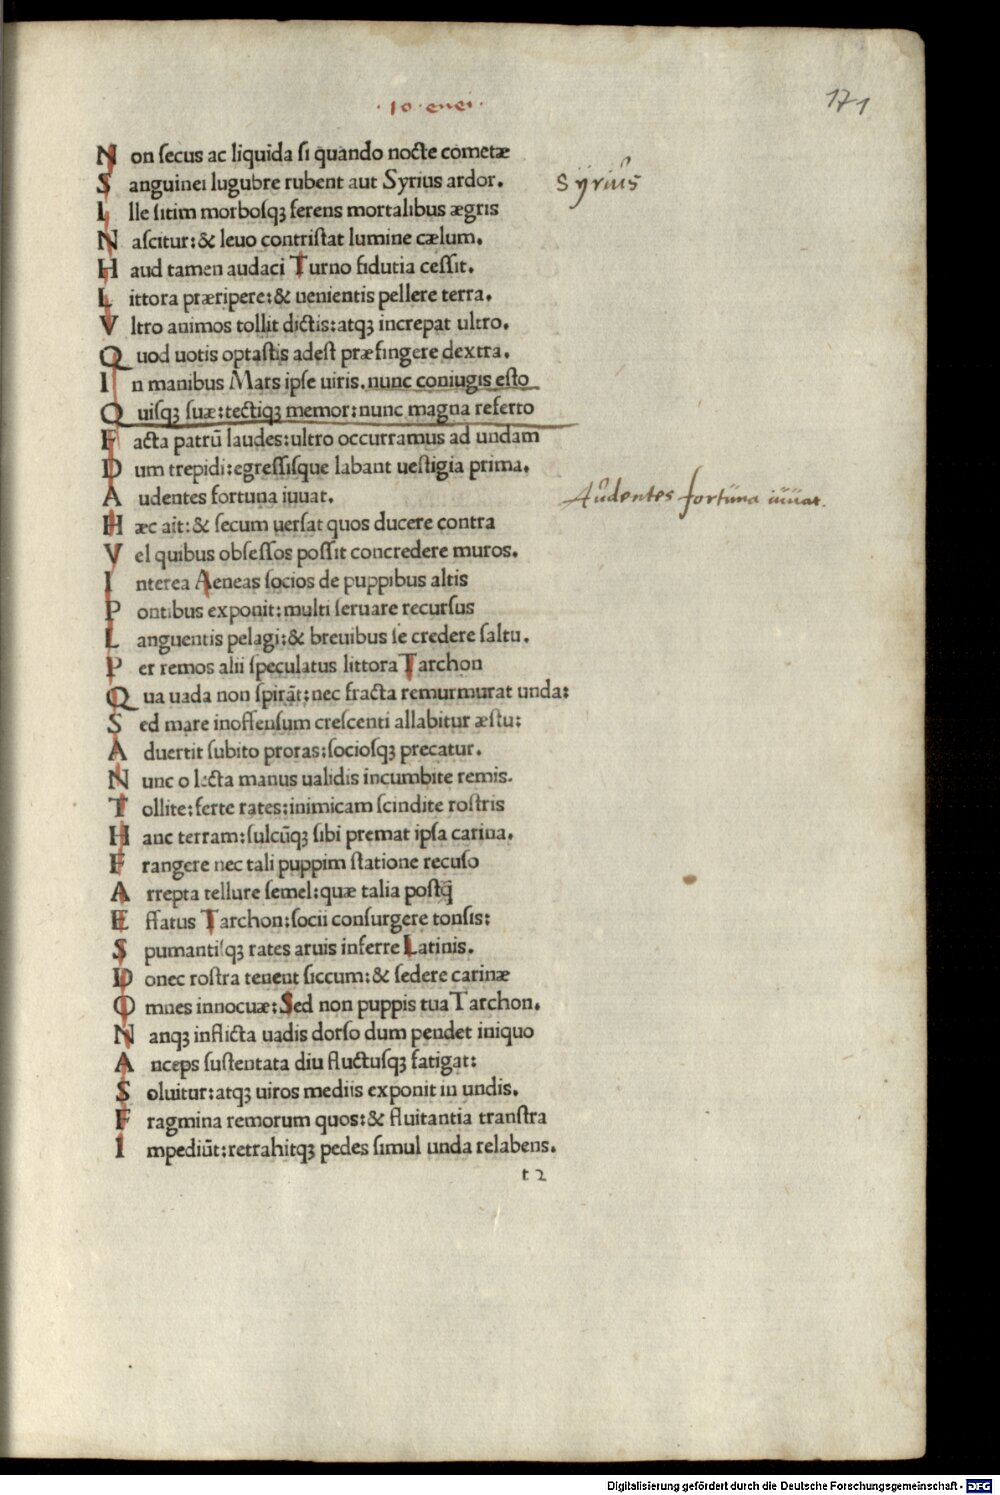 · 10 · enei ·
171
Non secus ac liquida si quando nocte cometæ
Sanguinei lugubre rubent aut Syrius ardor.
Syrius
Ille sitim morbosqꝫ ferens mortalibus ægris
Nascitur: & leuo contristat lumine cælum.
Haud tamen audaci Turno fidutia cessit.
Littora præripere: & uenientis pellere terra.
Vltro animos tollit dictis: atqꝫ increpat ultro.
Quod uotis optastis adest præfingere dextra.
In manibus Mars ipse uiris. nunc coniugis esto
Quisqꝫ suæ: tectiqꝫ memor: nunc magna referto
Facta patrū laudes: ultro occurramus ad undam
Dum trepidi: egressisque labant uestigia prima.
Audentes fortuna iuuat.
Audentes fortuna iuuat.
Hæc ait: & secum uersat quos ducere contra
Vel quibus obsessos possit concredere muros.
Interea Aeneas socios de puppibus altis
Pontibus exponit: multi seruare recursus
Languentis pelagi: & breuibus se credere saltu.
Per remos alii speculatus littora Tarchon
Qua uada non spirāt: nec fracta remurmurat unda:
Sed mare inoffensum crescenti allabitur æstu:
Aduertit subito proras: sociosqꝫ precatur.
Nunc o lecta manus ualidis incumbite remis.
Tollite: ferte rates: inimicam scindite rostris
Hanc terram: sulcūqꝫ sibi premat ipsa carina.
Frangere nec tali puppim statione recuso
Arrepta tellure semel: quæ talia postq̄
Effatus Tarchon: socii consurgere tonsis:
Spumantisqꝫ rates aruis inferre Latinis.
Donec rostra tenent siccum: & sedere carinæ
Omnes innocuæ: Sed non puppis tua Tarchon.
Nanqꝫ inflicta uadis dorso dum pendet iniquo
Anceps sustentata diu fluctusqꝫ fatigat:
Soluitur: atqꝫ uiros mediis exponit in undis.
Fragmina remorum quos: & fluitantia transtra
Impediūt: retrahitqꝫ pedes simul unda relabens.
t 2
Digitalisierung gefördert durch die Deutsche Forschungsgemeinschaft - DFG